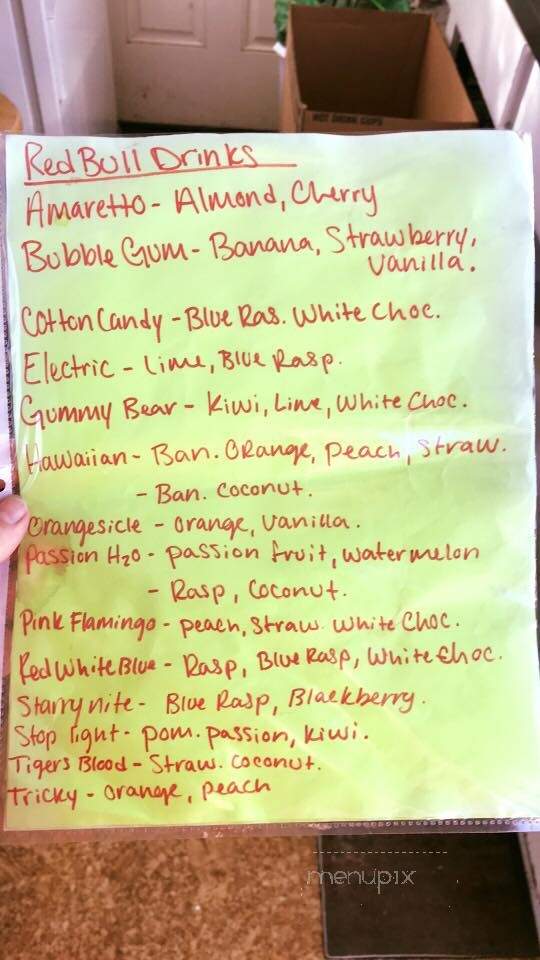 HOT DRINK CUPS
Red Bull Drinks
Amaretto - Almond, Cherry
Bubble Gum - Banana, Strawberry,
Vanilla.
Cotton Candy - Blue Ras. White Choc.
Electric - Lime, Blue Rasp.
Gummy Bear - Kiwi, Lime, White Choc.
Hawaiian - Ban. Orange, Peach, Straw.
- Ban. Coconut.
Orangesicle - Orange, Vanilla.
Passion H2O - passion fruit, watermelon
- Rasp, Coconut.
Pink Flamingo - peach, Straw. White Choc.
Red White Blue - Rasp, Blue Rasp, White Choc.
Starry nite - Blue Rasp, Blackberry.
Stop light - pom. passion, kiwi.
Tigers Blood - Straw. Coconut.
Tricky - orange, peach
menupix